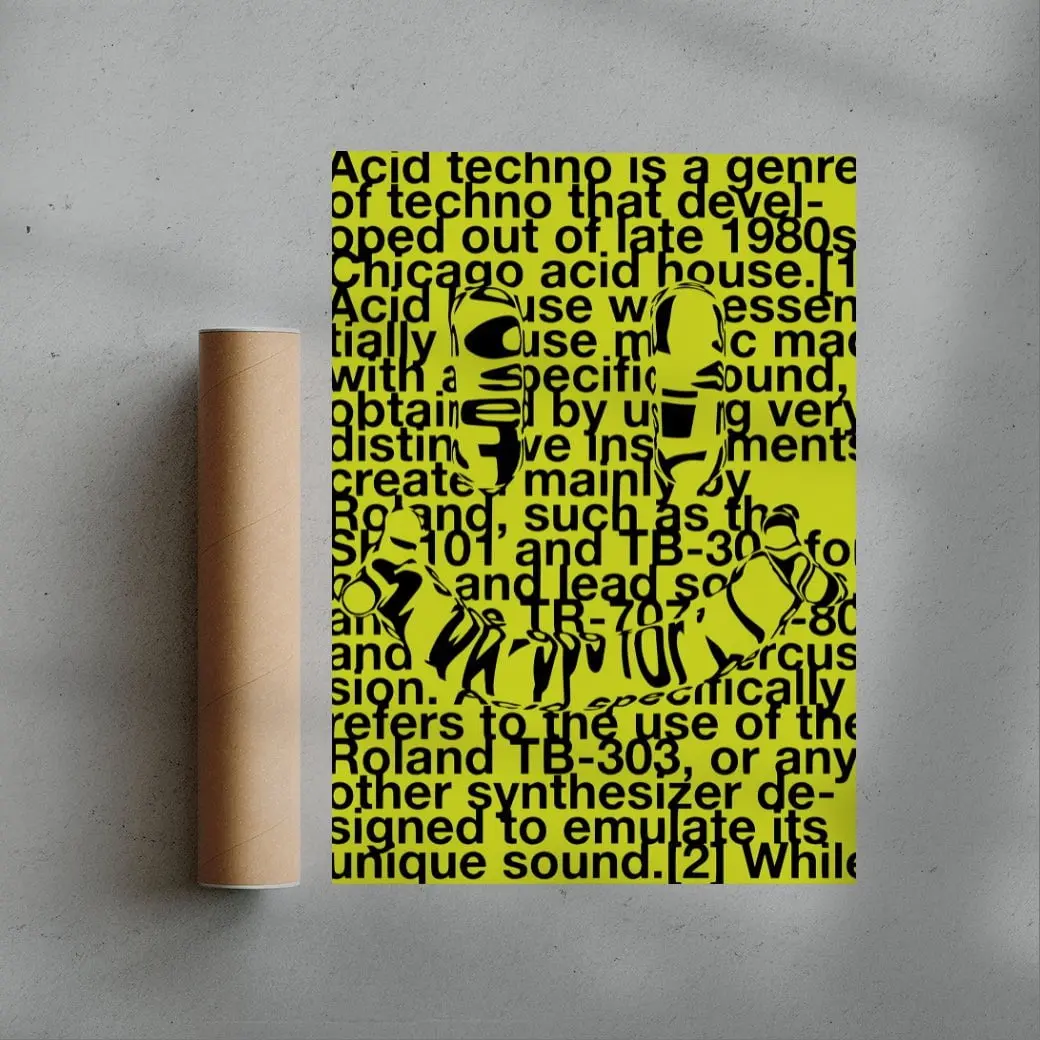 Acid techno is a genre
of techno that devel-
oped out of late 1980s
Chicago acid house.[1
Acid use w essen
tially use m c mac
with a pecific ound,
obtain d by u g very
distin ve ins ments
create mainly by
Roland, such as the
SH-101 and TB-30 for
and lead so
an TR-707 -80
and ercus
sion. Acid specifically
refers to the use of the
Roland TB-303, or any
other synthesizer de-
signed to emulate its
unique sound.[2] While